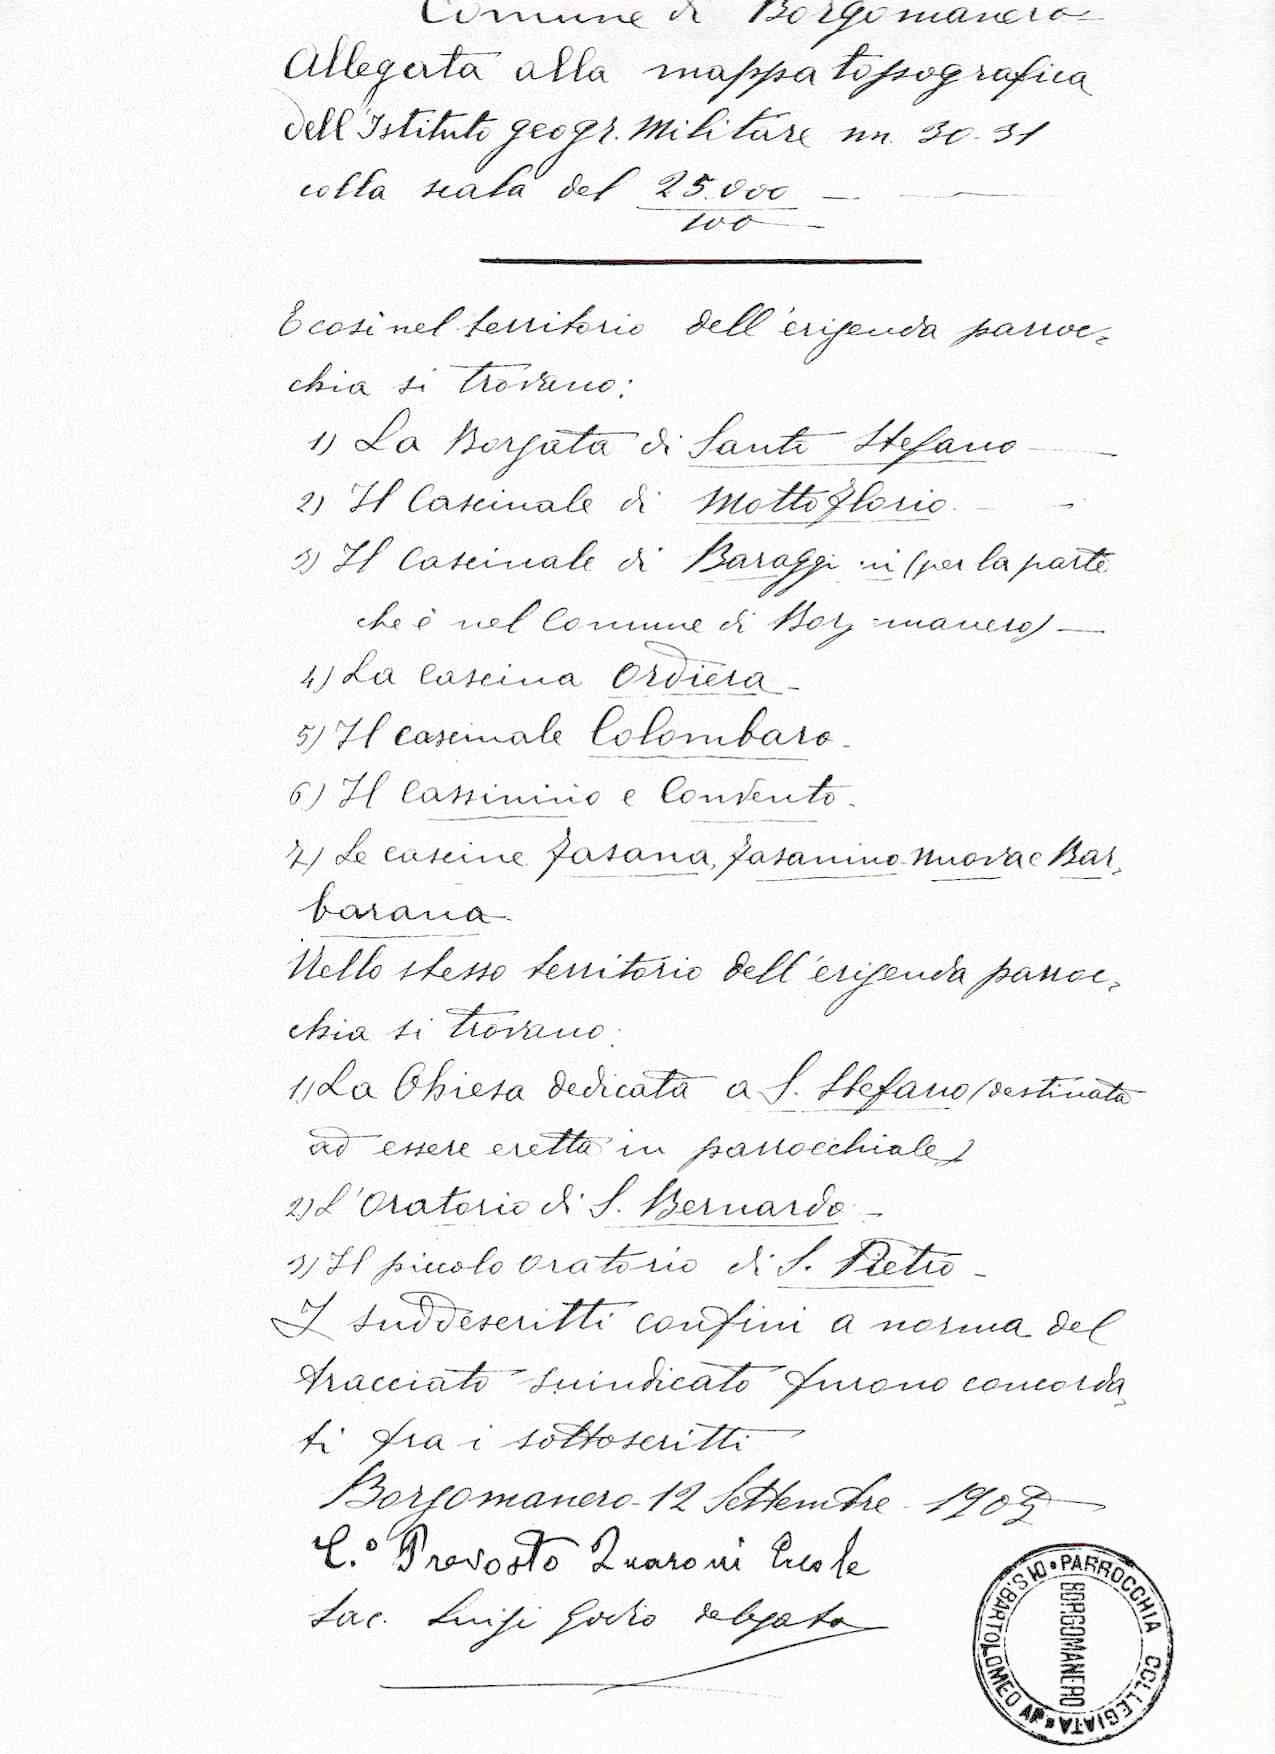 Comune di Borgomanero
Allegata alla mappa topografica
dell'Istituto geogr. Militare nn. 30-31
colla scala del 25.000
100
E così nel territorio dell'erigenda parroc=
chia si trovano:
1) La Borgata di Santo Stefano
2) Il Cascinale di Motto Florio.
3) Il Cascinale di Baraggini (per la parte
che è nel Comune di Borgomanero) —
4) La Cascina Ordiera -
5) Il cascinale Colombaro -
6) Il Cassinino e Convento -
7) Le cascine Fasana, Fasanino Nuova e Bar=
barana
Nello stesso territorio dell'erigenda parroc=
chia si trovano:
1) La Chiesa dedicata a S. Stefano (destinata
ad essere eretta in parrocchiale)
2) L'Oratorio di S. Bernardo -
3) Il piccolo oratorio di S. Pietro -
I suddescritti confini a norma del
tracciato suindicato furono concorda=
ti fra i sottoscritti
Borgomanero - 12 Settembre - 1909
C.º Prevosto Zuaroni Ercole
Sac. Luigi Godio delegato
PARROCCHIA COLLEGIATA DI S. BARTOLOMEO AP.
BORGOMANERO